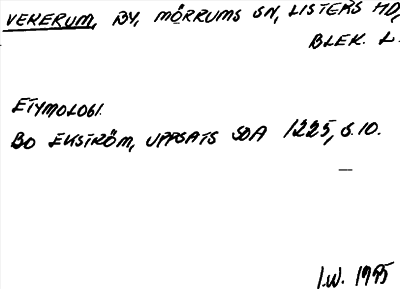 VEKERUM, BY, MÖRRUMS SN, LISTERS HD,
BLEK. L.
ETYMOLOGI.
BO EKSTRÖM, UPPSATS SOA 1225, S.10.
—
I.W. 1995